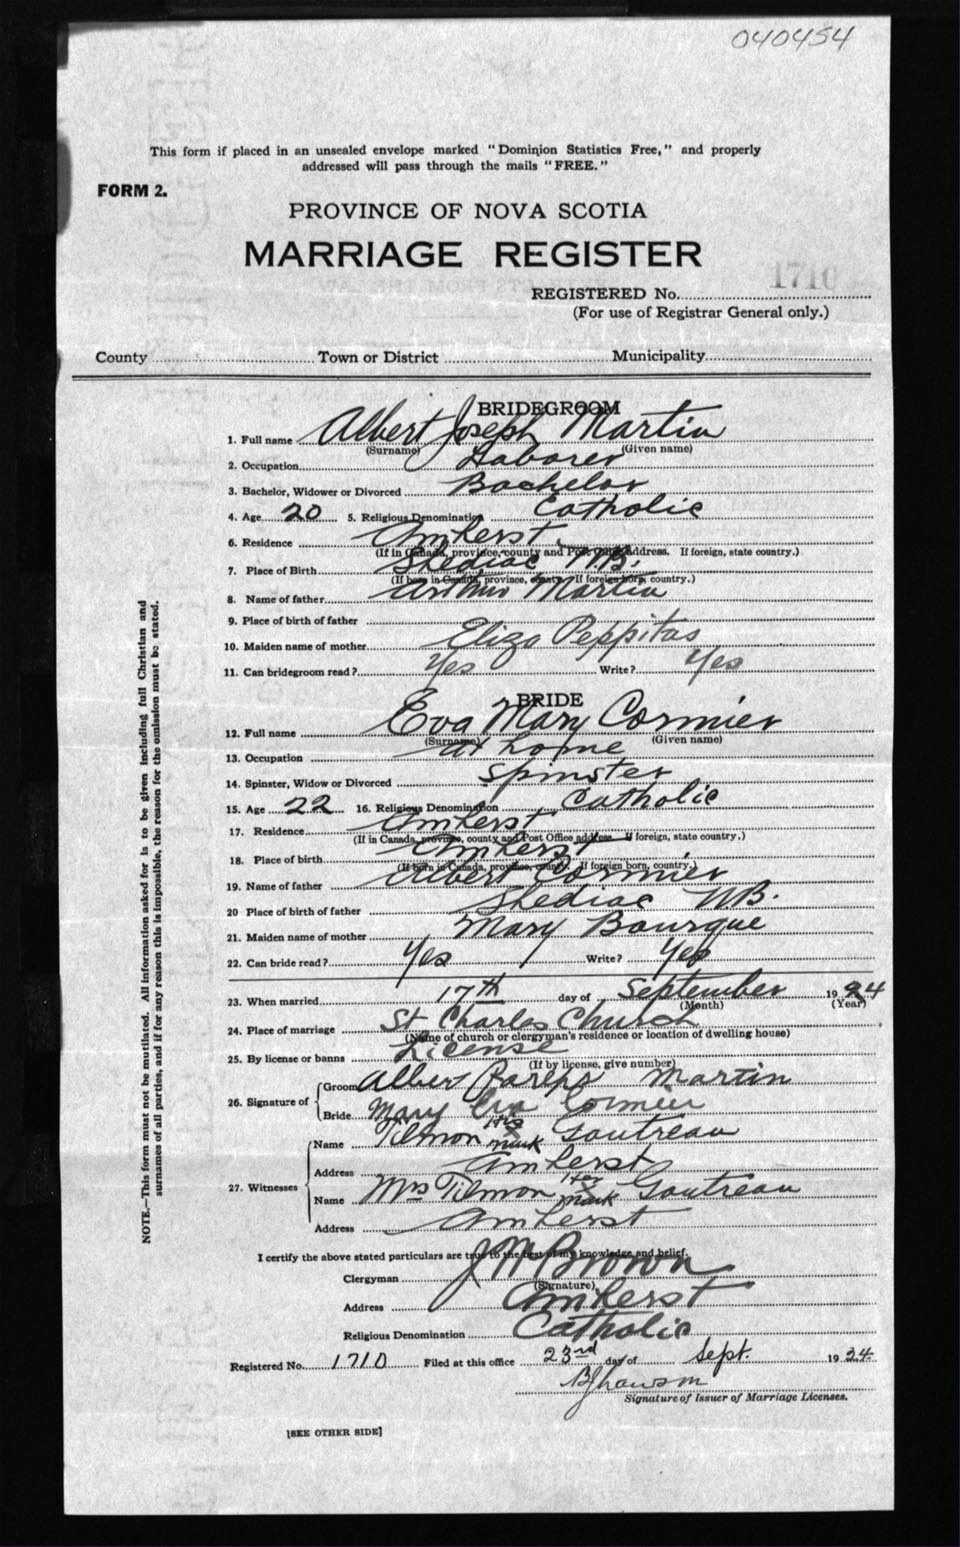 040454
This form if placed in an unsealed envelope marked "Dominion Statistics Free," and properly
addressed will pass through the mails "FREE."
FORM 2.
PROVINCE OF NOVA SCOTIA
MARRIAGE REGISTER
1710
REGISTERED No.
(For use of Registrar General only.)
County Town or District Municipality
BRIDEGROOM
1. Full name Albert Joseph Martin
(Surname) (Given name)
2. Occupation Laborer
3. Bachelor, Widower or Divorced Bachelor
4. Age 20 5. Religious Denomination Catholic
6. Residence Amherst
(If in Canada, province, county and Post Office Address. If foreign, state country.)
7. Place of Birth Shediac N.B.
(If born in Canada, province, county. If foreign born, country.)
8. Name of father Arthur Martin
9. Place of birth of father
10. Maiden name of mother Eliza Peppitas
11. Can bridegroom read? Yes Write? Yes
BRIDE
12. Full name Eva Mary Cormier
(Surname) (Given name)
13. Occupation at home
14. Spinster, Widow or Divorced Spinster
15. Age 22 16. Religious Denomination Catholic
17. Residence Amherst
(If in Canada, province, county and Post Office address. If foreign, state country.)
18. Place of birth Amherst
(If born in Canada, province, county. If foreign born, country.)
19. Name of father Albert Cormier
20 Place of birth of father Shediac NB.
21. Maiden name of mother Mary Bourque
22. Can bride read? Yes Write? Yes
23. When married 17th day of September 1924
(Month) (Year)
24. Place of marriage St Charles Church
(Name of church or clergyman's residence or location of dwelling house)
25. By license or banns License
(If by license, give number)
26. Signature of
Groom Albert Martin
Bride Mary Eva Cormier
27. Witnesses
Name Tilmon His X mark Goutreau
Address Amherst
Name Mrs Tilmon Her X mark Goutreau
Address Amherst
I certify the above stated particulars are true to the best of my knowledge and belief.
Clergyman J M Brown
(Signature)
Address Amherst
Religious Denomination Catholic
Registered No. 1710 Filed at this office 23rd day of Sept. 1924.
Signature of Issuer of Marriage Licenses.
[SEE OTHER SIDE]
NOTE.—This form must not be mutilated. All information asked for is to be given including full Christian and
surnames of all parties, and if for any reason this is impossible, the reason for the omission must be stated.